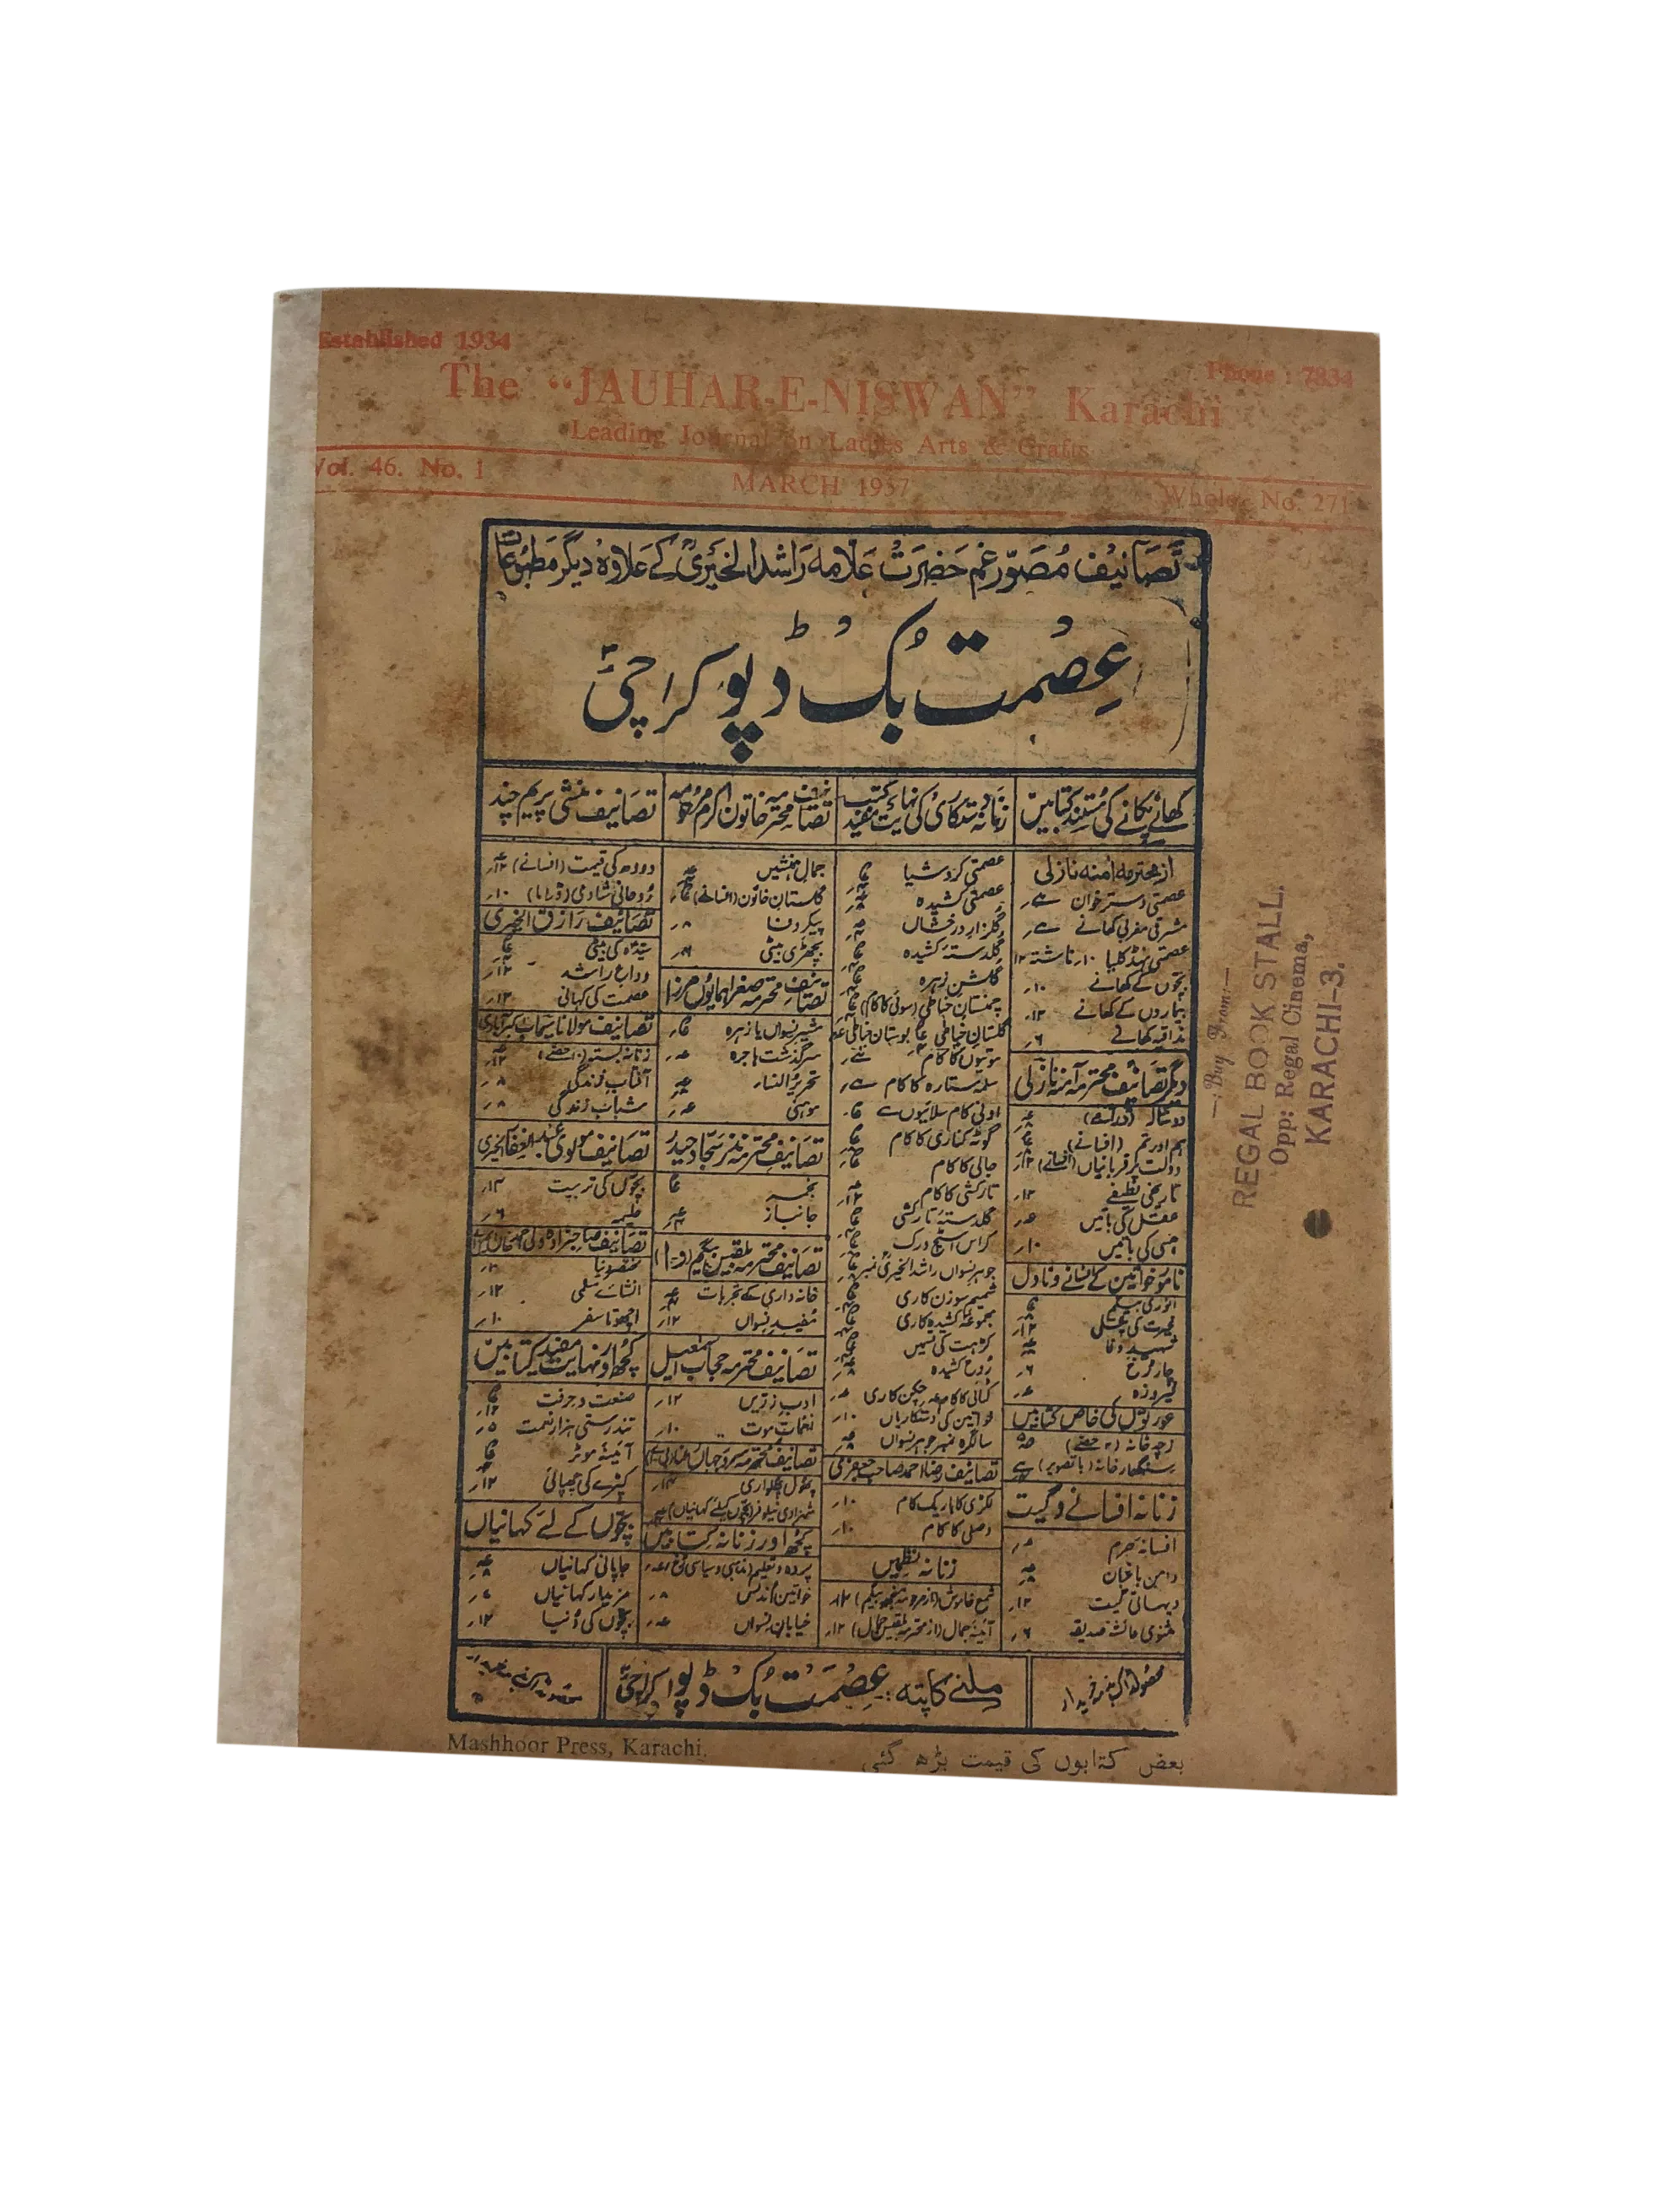 Established 1934
Phone : 7834
The “JAUHAR-E-NISWAN” Karachi
Leading Journal on Ladies Arts & Crafts
Vol. 46. No. 1
MARCH 1957
Whole No. 271
تصانیف مصور غم حضرت علامہ راشد الخیریؒ کے علاوہ دیگر مطبوعات
عصمت بک ڈپو کراچی
کھانے پکانے کی مستند کتابیں
از محترمہ آمنہ نازلی
عصمتی دسترخوان
مشرقی مغربی کھانے
عصمتی ہنڈکلیا ۱۰؍ ناشتہ ۱۲
بچوں کے کھانے ۱۰؍
بیماروں کے کھانے ۱۲؍
مذاقیہ کھانے ۶؍
دیگر تصانیف محترمہ آمنہ نازلی
دوشالہ
ہم اور تم (افسانے)
دولت پر قربانیاں (افسانے)
تاریخی لطیفے ۱۲؍
عقل کی باتیں ۸؍
ہنسی کی باتیں ۱۰؍
نامور خواتین کے افسانے و ناول
انوری بیگم
شہید وفا
فیروزہ ۸؍
عورتوں کی خاص کتابیں
زچہ خانہ
سنگھار خانہ (با تصویر)
زنانہ افسانے و گیت
افسانہ حرم
دامن باغبان
دیہاتی گیت ۱۲؍
مثنوی عائشہ صدیقہ ۶؍
زنانہ دستکاری کی نہایت مفید کتب
عصمتی کروشیا
عصمتی کشیدہ
گلزار درخشاں
گلدستہ کشیدہ
گلشن زہرہ
چمنستان خیاطی (سوئی کا کام)
گلستان خیاطی بوستان خیاطی
موتیوں کا کام
سلمہ ستارہ کا کام
اونی کام سلائیوں سے
گوٹہ کناری کا کام
جالی کا کام
تارکشی کا کام
گلدستہ تارکشی
کراس اسٹیچ ورک
جوہر نسواں راشد الخیری نمبر
شمیم سوزن کاری
مجموعہ کشیدہ کاری
کڑہت کی بیلیں
روح کشیدہ
کٹائی کا کام چکن کاری
خواتین کی دستکاریاں ۱۰؍
سالگرہ نمبر جوہر نسواں
تصانیف رضا احمد صاحب جعفری
لکڑی کا باریک کام ۱۰؍
وصلی کا کام ۱۰؍
زنانہ نظمیں
شمع خاموش
آئینہ جمال (از محترمہ بلقیس جمال) ۱۲؍
تصانیف محترمہ خاتون اکرم مرحومہ
جمال ہمنشیں
گلستان خاتون (افسانے)
پیکر وفا ۸؍
بچھڑی بیٹی ۶؍
تصانیف محترمہ صغرا ہمایوں مرزا
مشیر نسواں یا زہرہ
سرگذشت ہاجرہ
تحریر النساء
موہنی
تصانیف محترمہ نذر سجاد حیدر
نجمہ
جانباز
تصانیف محترمہ بلقیس بیگم
خانہ داری کے تجربات
مفید نسواں ۱۲؍
تصانیف محترمہ حجاب اسمٰعیل
ادب زریں ۱۲؍
نغمات موت ۱۰؍
پھول پھلواری
شہزادی نیلوفر (بچوں کیلئے کہانیاں)
کچھ اور زنانہ کتابیں
خواتین اندلس ۸؍
خیابان نسواں
تصانیف منشی پریم چند
دودھ کی قیمت (افسانے)
روحانی شادی (ڈراما) ۱۰؍
تصانیف رازق الخیری
سیدہ کی بیٹی
وداع راشد
عصمت کی کہانی ۱۲؍
تصانیف مولانا سیماب اکبرآبادی
آفتاب زندگی ۸؍
شباب زندگی ۸؍
تصانیف مولوی عبدالغفار الخیری
بچوں کی تربیت
حلیمہ ۶؍
انشائے سلمی ۱۲؍
اچھوتا سفر ۱۰؍
کچھ اور نہایت مفید کتابیں
صنعت و حرفت
تندرستی ہزار نعمت
آئینہ موٹر
کپڑے کی چھپائی ۱۲؍
بچوں کے لئے کہانیاں
جاپانی کہانیاں
مزیدار کہانیاں
بچوں کی دنیا ۱۲؍
محصول ڈاک بذمہ خریدار
ملنے کا پتہ: عصمت بک ڈپو کراچی
Mashhoor Press, Karachi.
بعض کتابوں کی قیمت بڑھ گئی
—: Buy From:—
REGAL BOOK STALL.
Opp: Regal Cinema,
KARACHI-3.